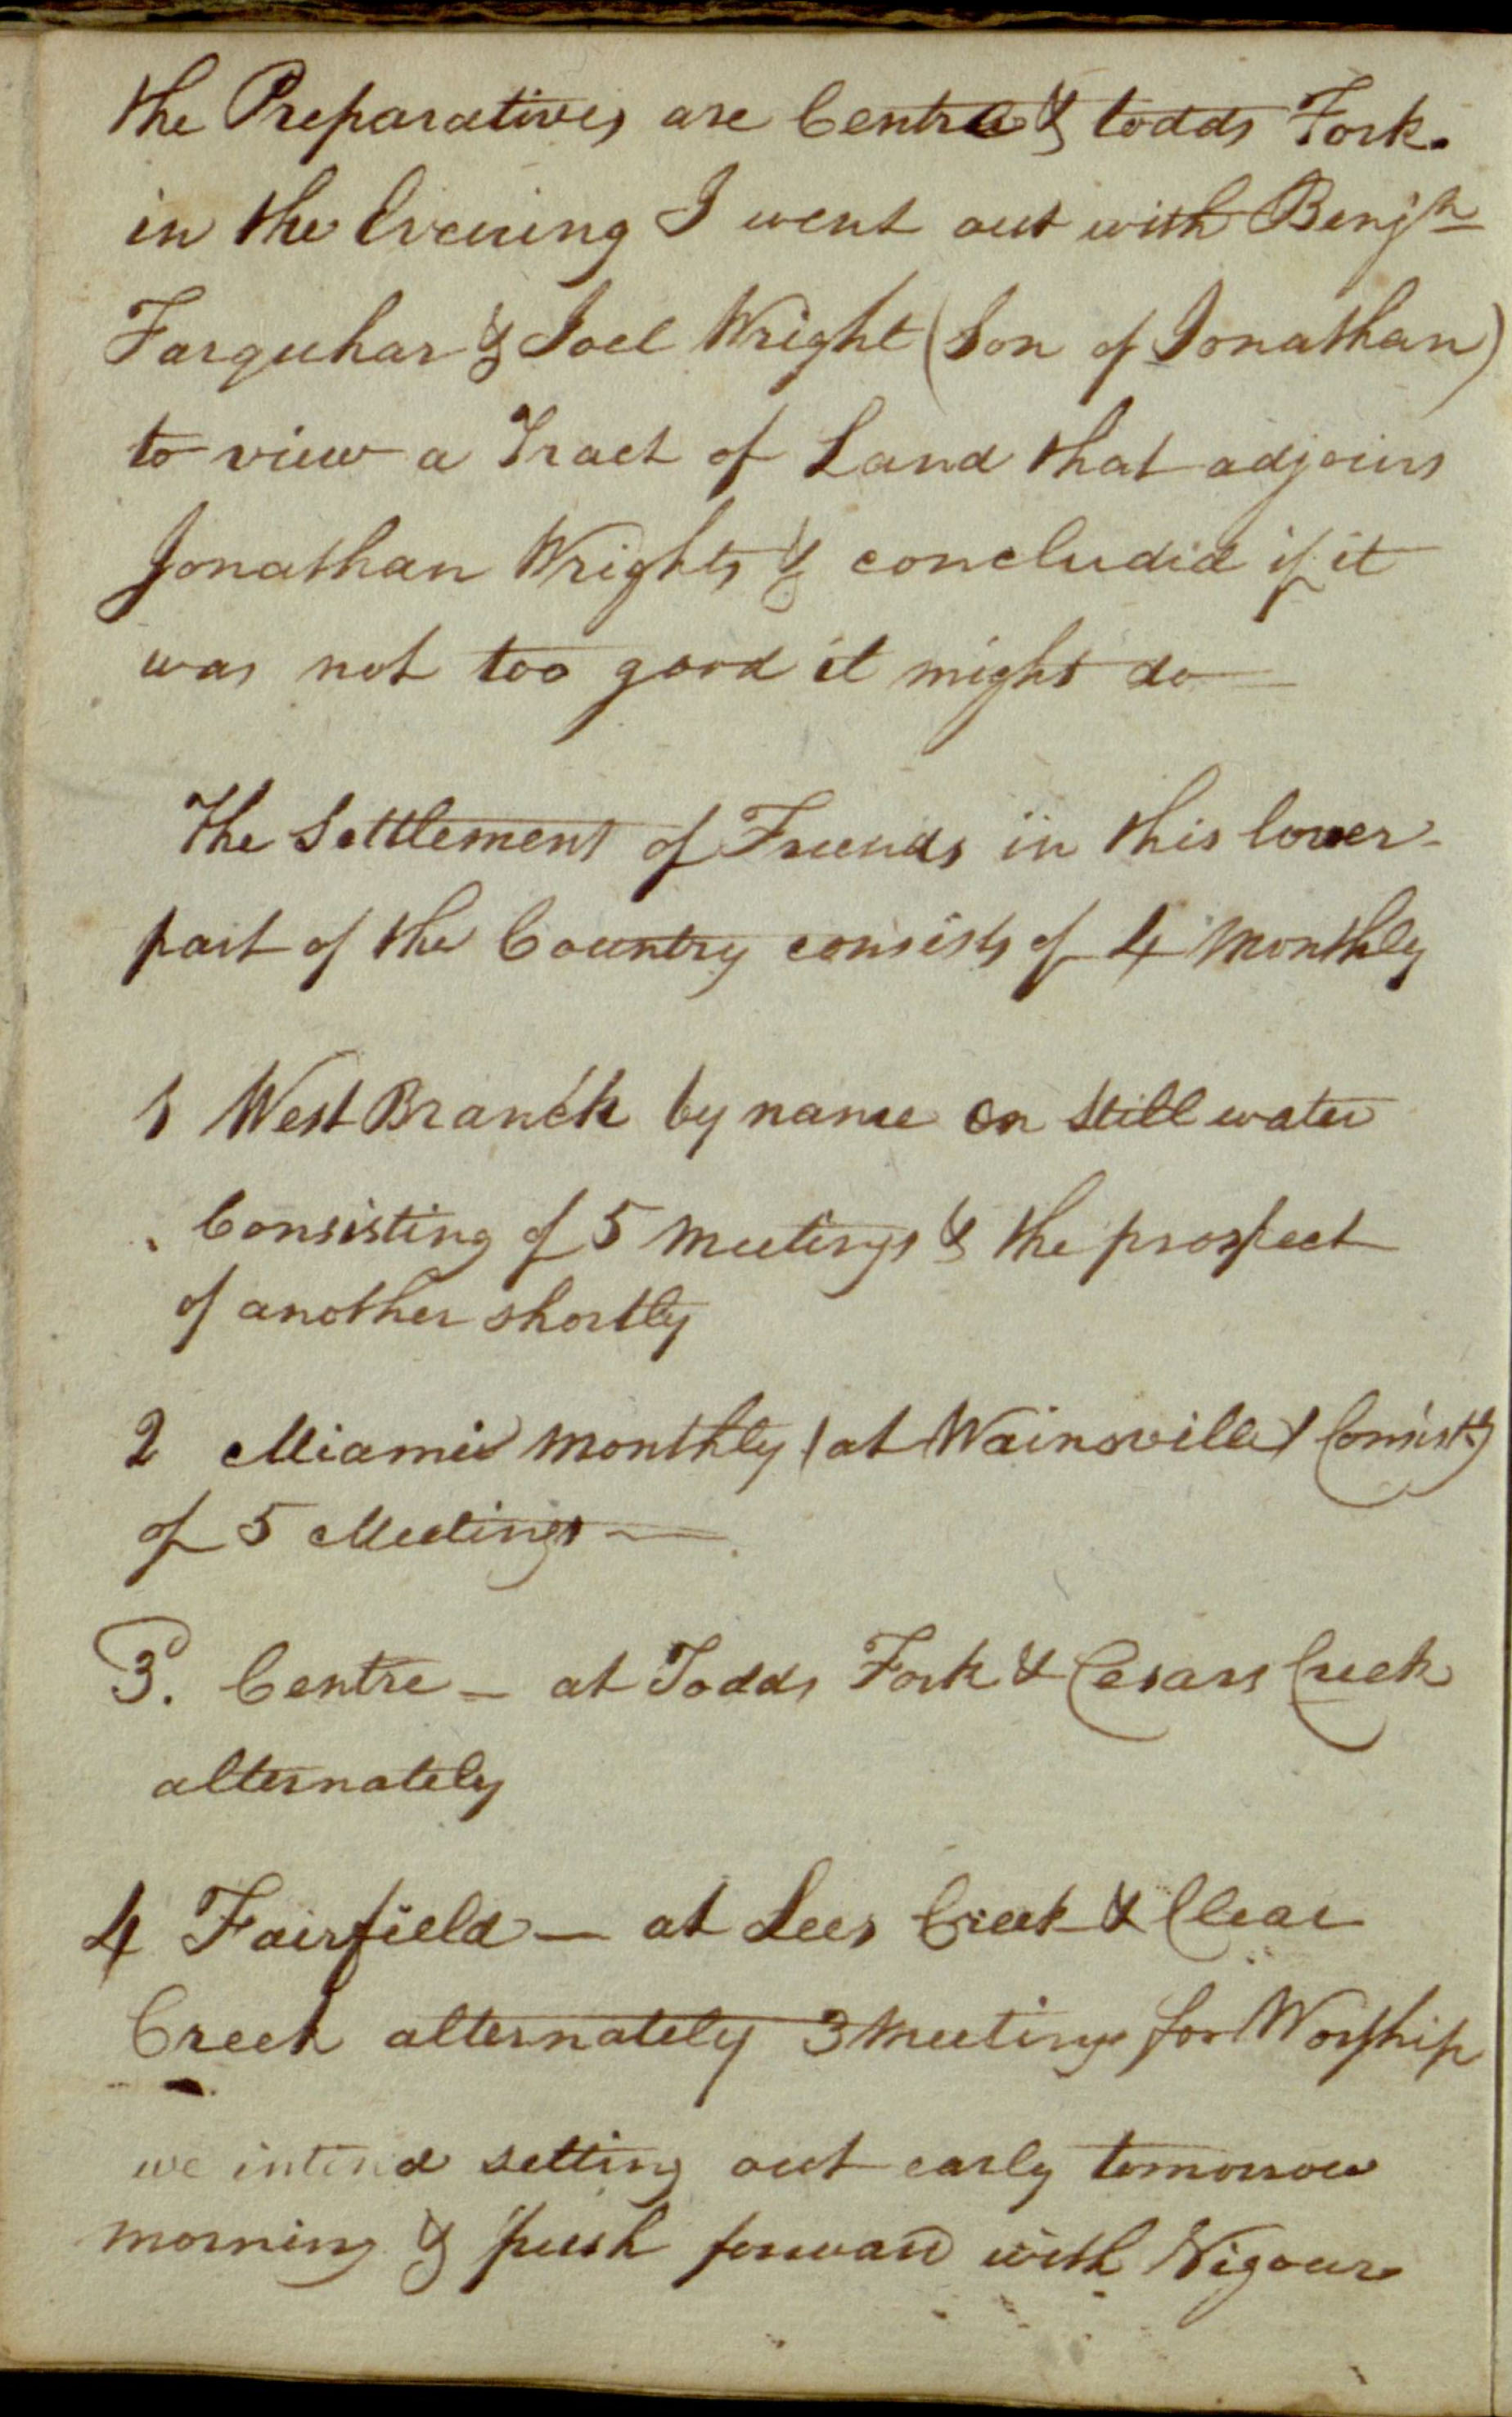 the Preparatives are Centre & todds Fork.
in the Evening I went out with Benjn
Farquhar & Joel Wright (Son of Jonathan)
to view a Tract of Land that adjoins
Jonathan Wrights & concluded if it
was not too good it might do
The Settlement of Freinds in this lower
part of the Country consists of 4 Monthly
1 West Branch by name on Still water
Consisting of 5 Meetings & the prospect
of another shortly
2 Miami Monthly (at Wainsville) Consistg
of 5 Meetings
3. Centre - at Todds Fork & Cesars Creek
alternately
4 Fairfield - at Lees Creek & Clear
Creek alternately 3 Meetings for Worship
we intend setting out early tomorrow
morning & push forward with Vigour